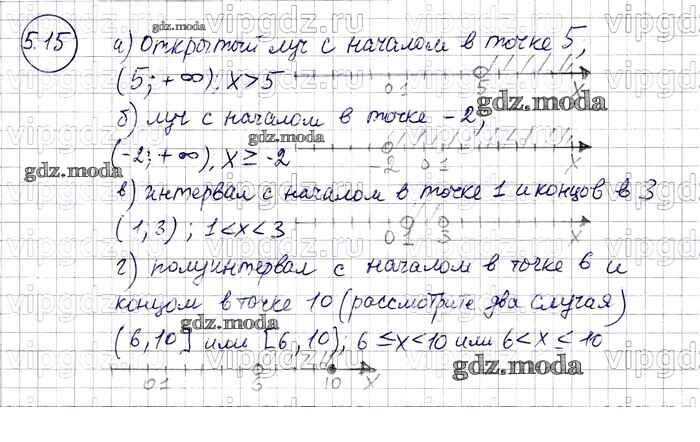 5.15
а) Открытый луч с началом в точке 5,
(5; +∞), x>5
0 1 5 x
б) луч с началом в точке -2,
(-2; +∞), x ≥ -2
-2 0 1 x
в) интервал с началом в точке 1 и концов в 3
(1, 3) ; 1 < x < 3
0 1 3 x
г) полуинтервал с началом в точке 6 и
концом в точке 10 (рассмотрите два случая)
(6, 10] или [6, 10); 6 ≤ x < 10 или 6 < x ≤ 10
0 1 10 x
gdz.moda
gdz.moda
gdz.moda
gdz.moda
gdz.moda
gdz.moda
gdz.moda
vipgdz.ru